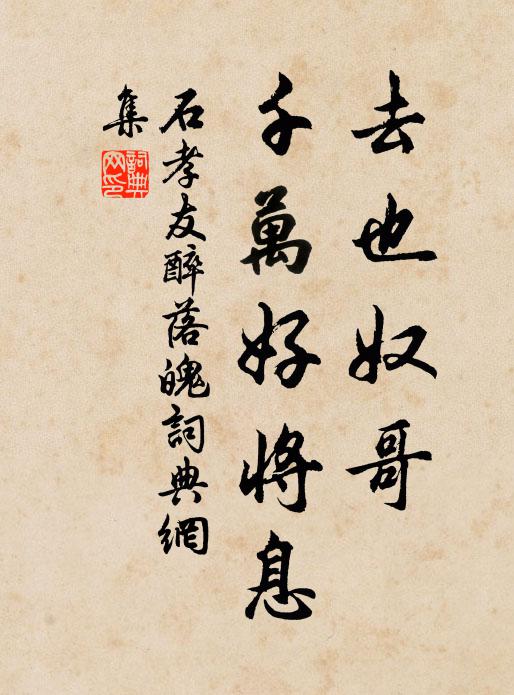 去也奴哥
千萬好將息
石孝友醉落魄詞典網
集
詞典
网印